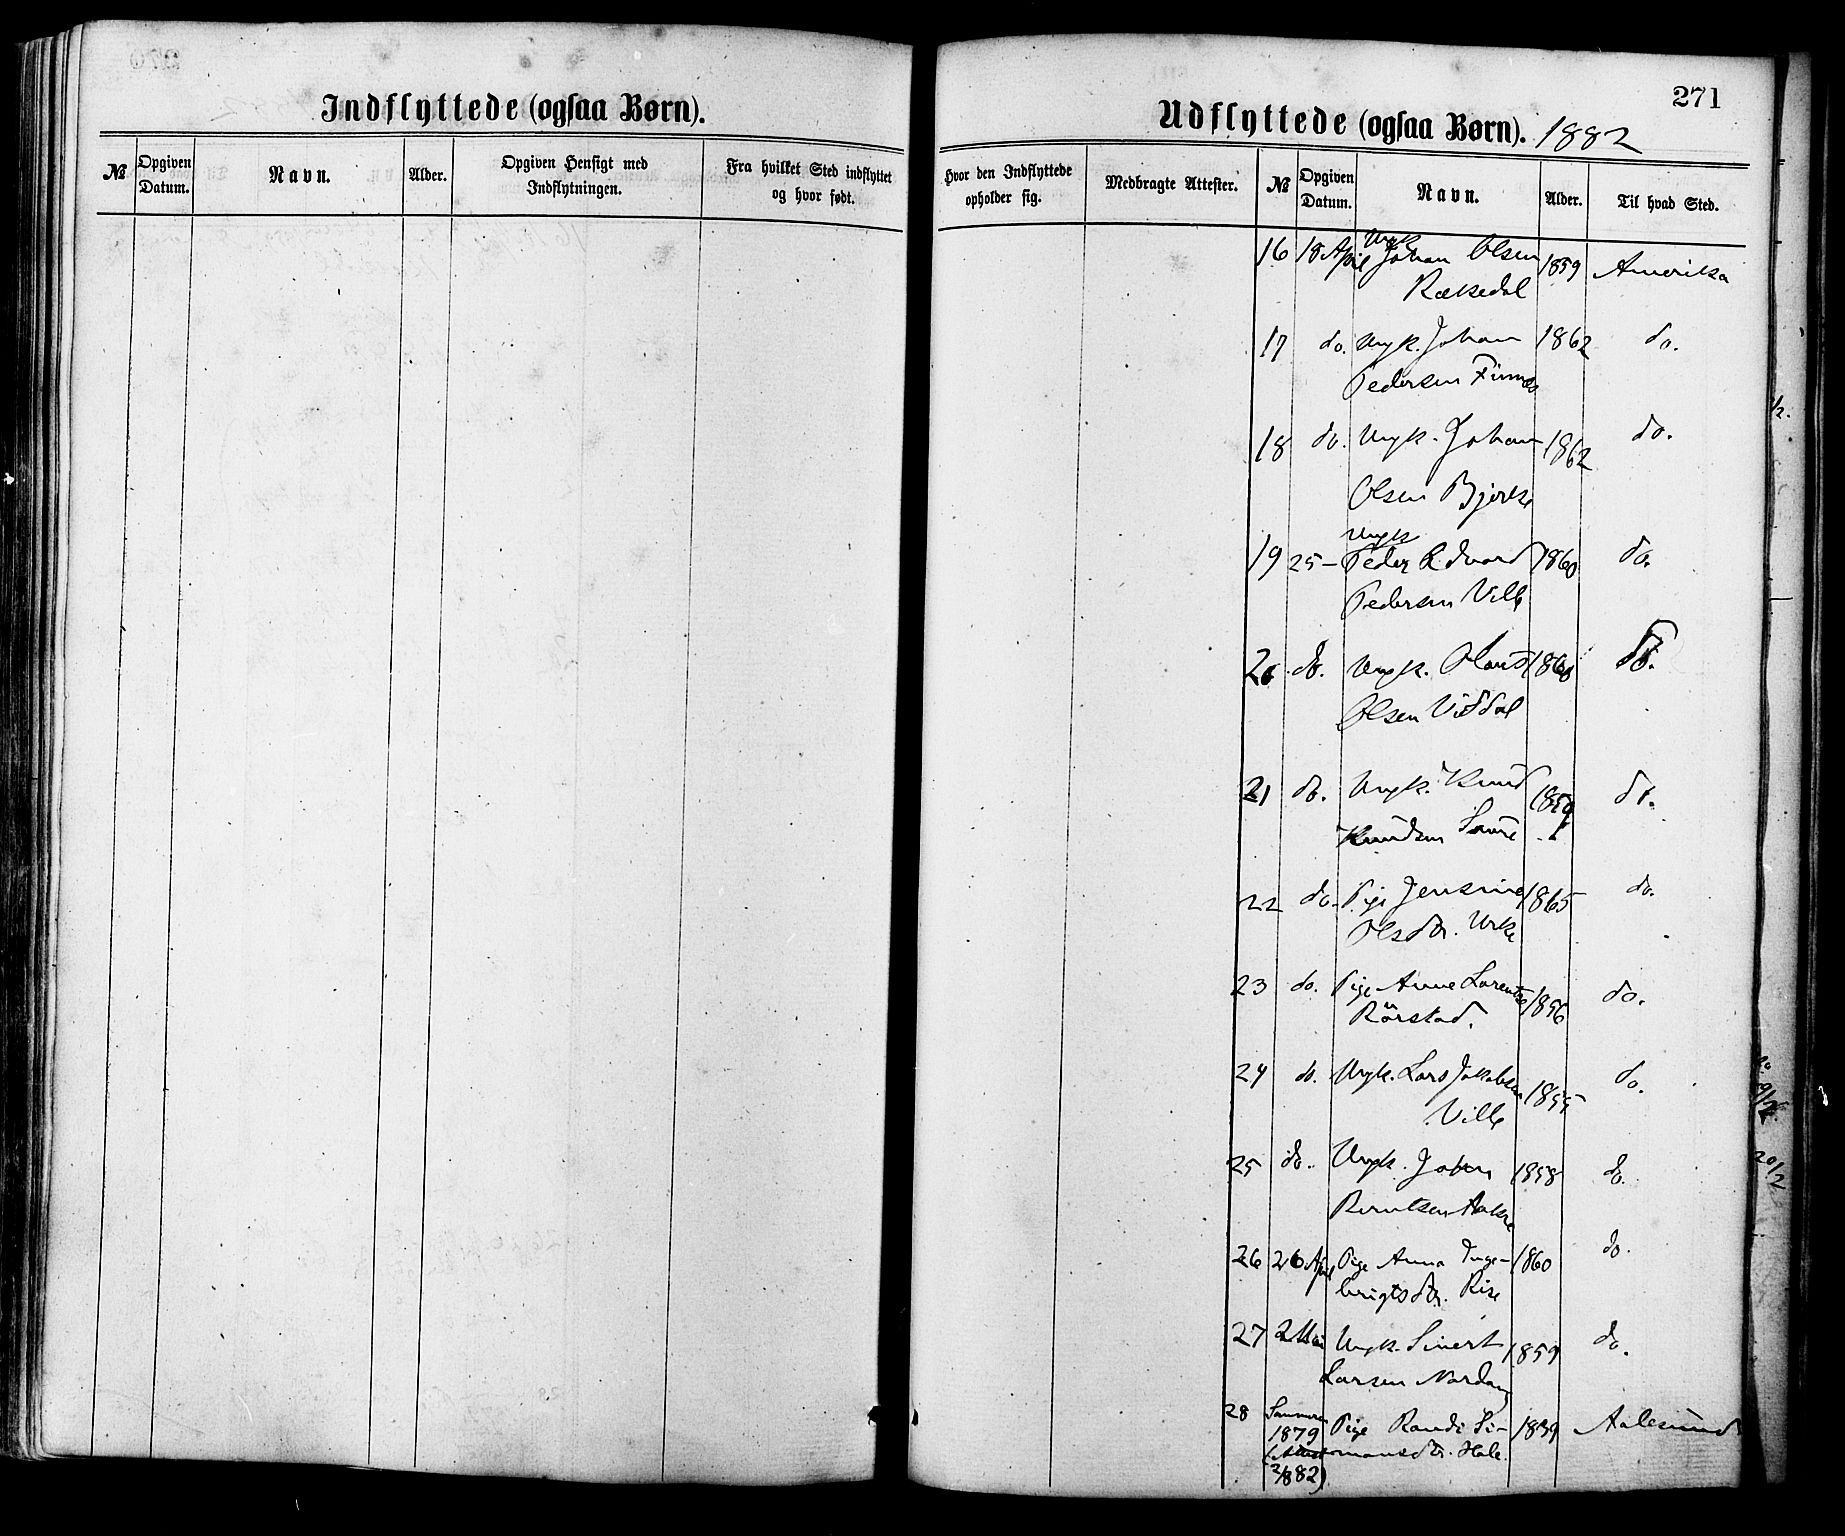 Indflyttede (ogsaa Børn).
№
Opgiven
Datum.
Navn.
Alder.
Opgiven Hensigt med
Indflytningen.
Fra hvilket Sted indflyttet
og hvor født.
271
Udflyttede (ogsaa Børn). 1882
Hvor den Indflyttede
opholder sig.
Medbragte Attester.
№
Opgiven
Datum.
Navn.
Alder.
Til hvad Sted.
Ungk
16 18 April Johan Olsen 1859 Amerika
Rækedal
17 do. Ungk. Johan 1862 do.
Pedersen Finnes
18 do. Ungk. Johan 1862 do.
Olsen Bjerke
Ungk
19 25 – Peder Edvard 1860 do.
Pedersen Ville
20 do. Ungk. 1860 do.
Olsen Viddal
21 do. Ungk. Knud 1859 do.
Knudsen Saure
22 do. Pige Jensine 1865 do.
Olsdtr. Urke
23 do. Pige Anne Lorentse 1856 do.
Rörstad.
24 do. Ungk. Lars Jakobsen 1855 do.
Ville
25 do. Ungk. Johan 1858 do.
Berntsen Aakre
26 26 April Pige Anna Inge- 1860 do.
brigtsdtr. Rise
27 2 Mai Ungk. Sivert 1859 do.
Larsen Nordang
28 Sommeren Pige Randi Si- 1839 Aalesund
1879 monsdtr. Hole
2/882)